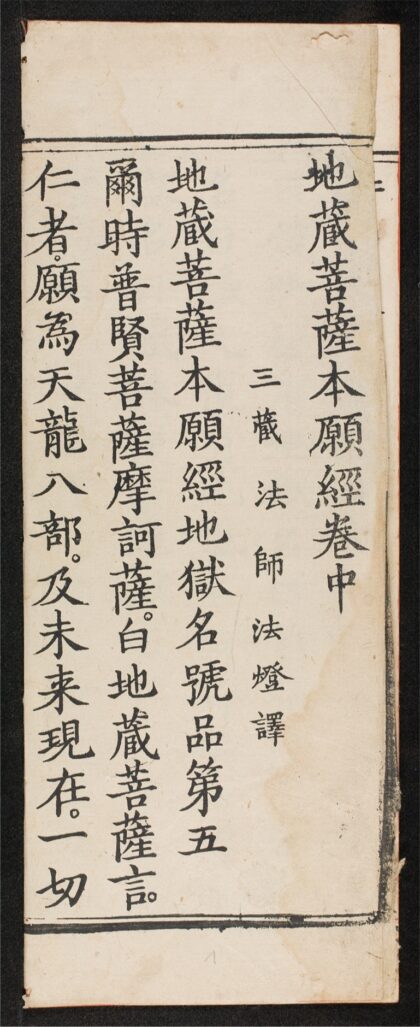 地藏菩薩本願經卷中
三藏法師法燈譯
地藏菩薩本願經地獄名號品第五
爾時普賢菩薩摩訶薩。白地藏菩薩言。
仁者。願為天龍八部。及未来現在。一切